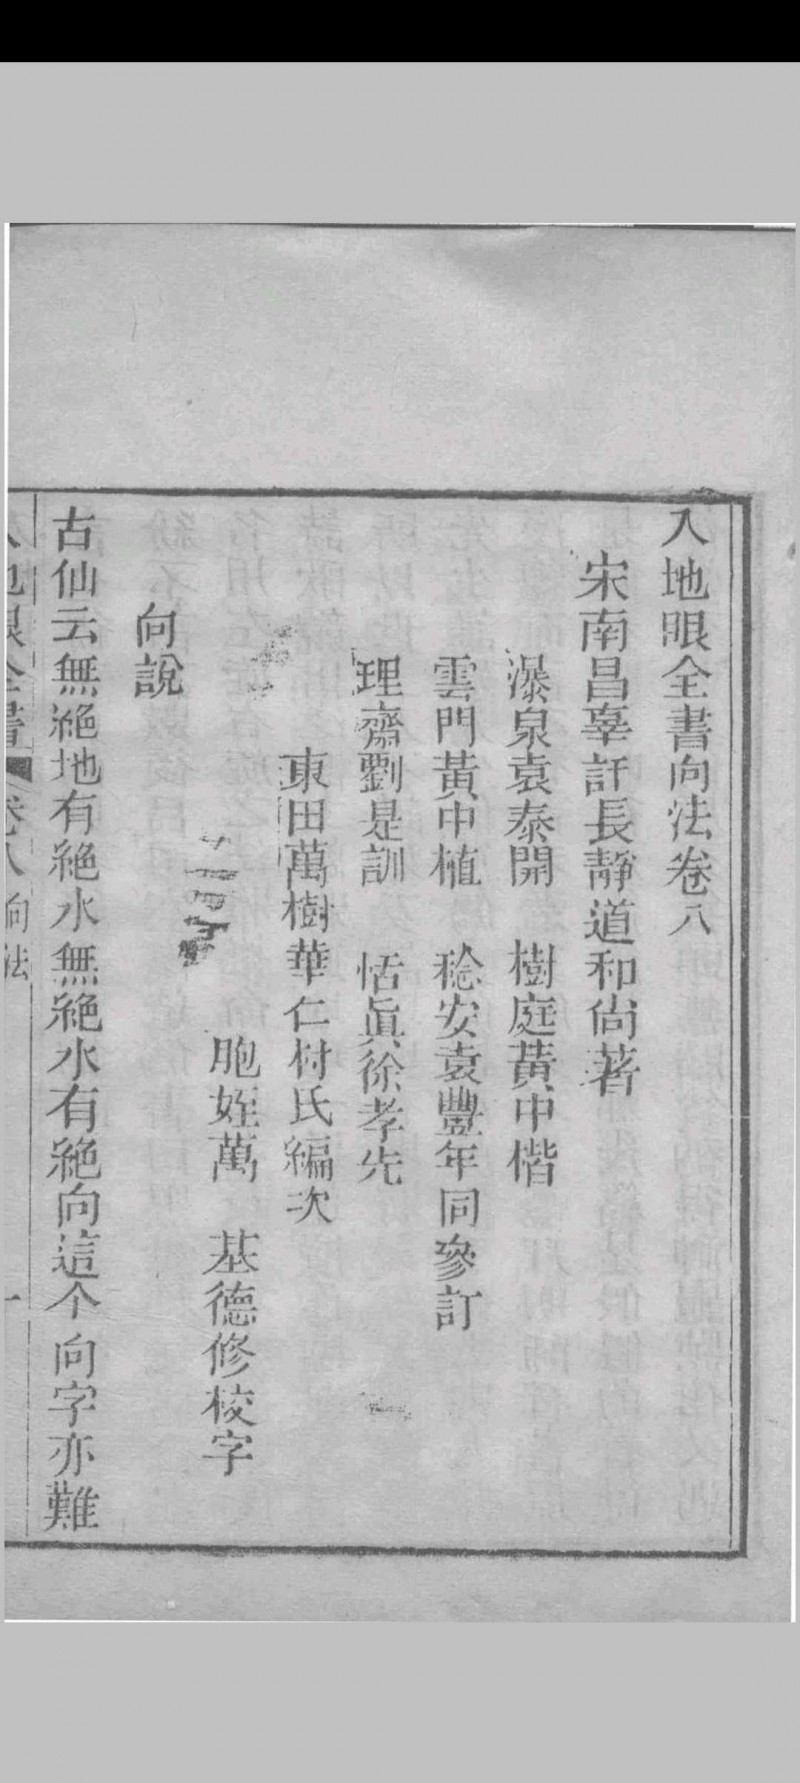 入地眼全書向法卷八
宋南昌辜託長靜道和尚著
瀑泉袁泰開　樹庭黃中楷
雲門黃中植　稔安袁豐年同參訂
理齋劉是訓　恬眞徐孝先
東田萬樹華仁村氏編次
胞姪萬　基德修校字
向說
古仙云無絕地有絕水無絕水有絕向這个向字亦難
入地眼全書　卷八　向法　一